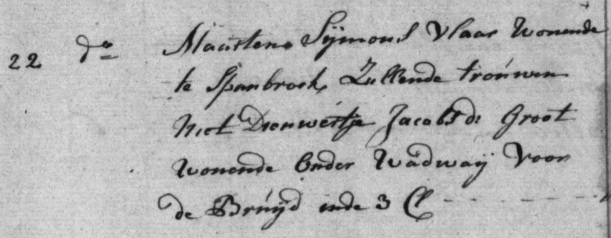 22 do Maarten Sijmonsz Vlaar Wonende
te Spanbroek, Zullende trouwen
Met Dieuwertje Jacobs de Groot
Wonende Onder Wadway Voor
de Bruijd inde 3 Cl